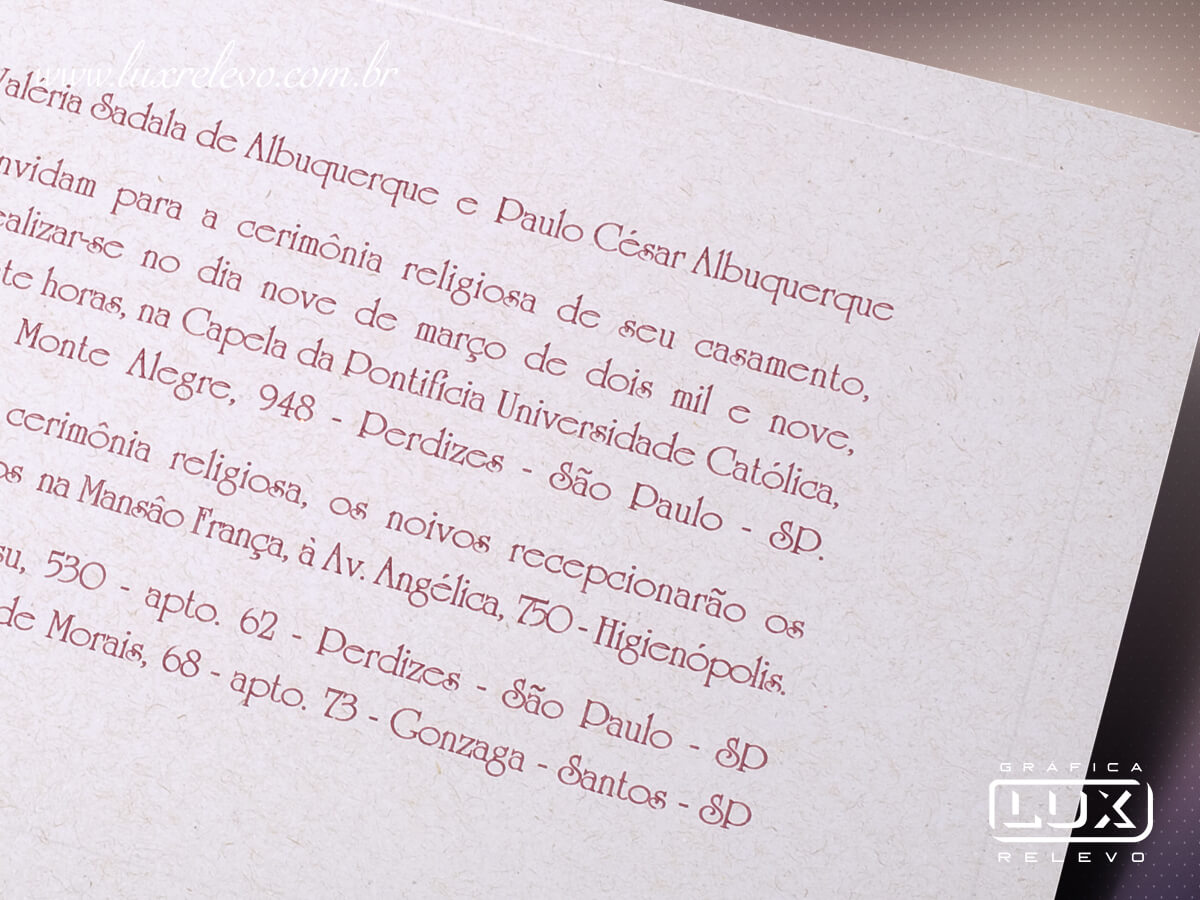 www.luxrelevo.com.br
Valéria Sadala de Albuquerque e Paulo César Albuquerque
nvidam para a cerimônia religiosa de seu casamento,
ealizar-se no dia nove de março de dois mil e nove,
te horas, na Capela da Pontifícia Universidade Católica,
Monte Alegre, 948 - Perdizes - São Paulo - SP.
cerimônia religiosa, os noivos recepcionarão os
os na Mansão França, à Av. Angélica, 750 - Higienópolis.
su, 530 - apto. 62 - Perdizes - São Paulo - SP
de Morais, 68 - apto. 73 - Gonzaga - Santos - SP
GRÁFICA
LUX
RELEVO